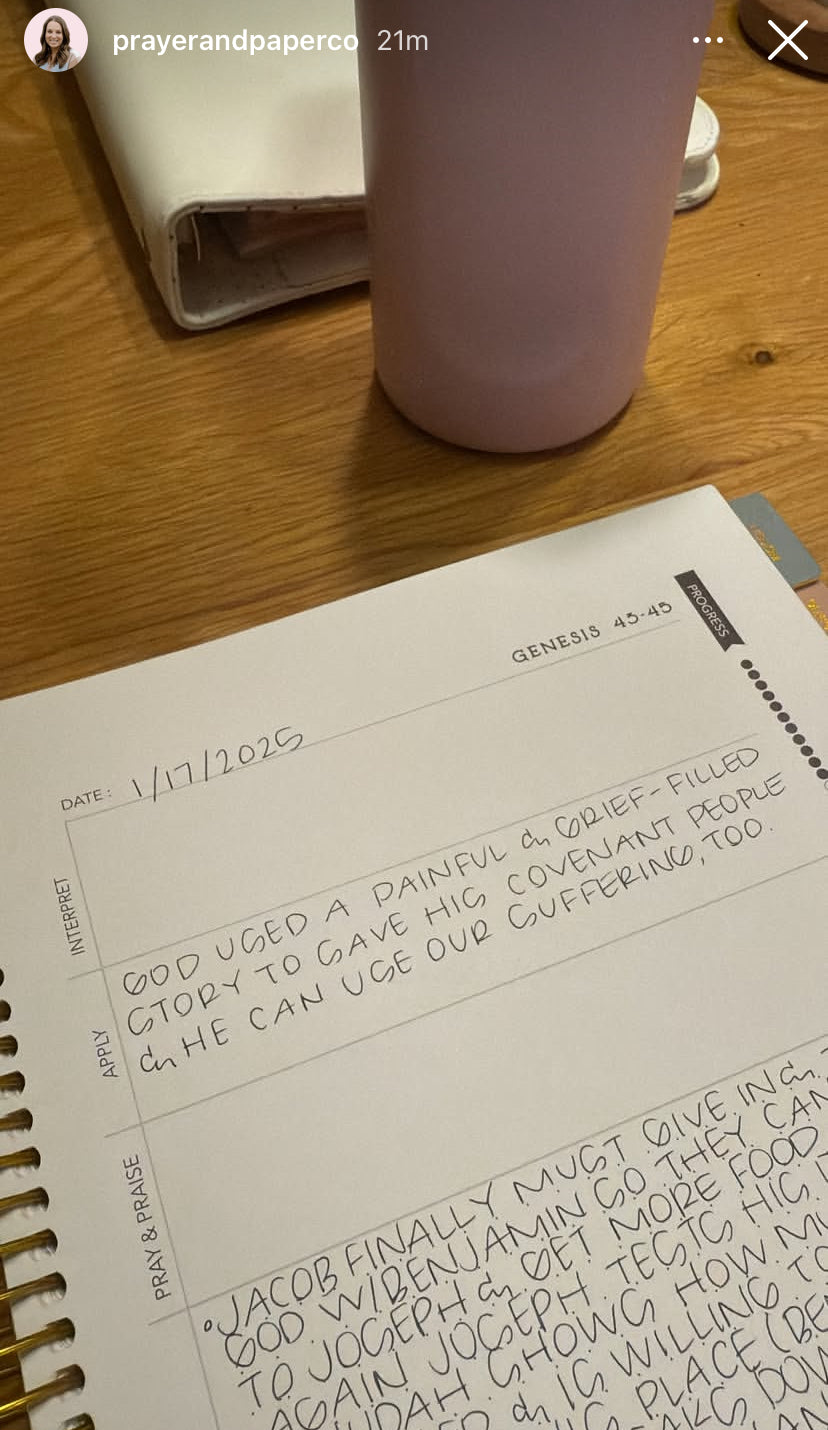 prayerandpaperco 21m
PROGRESS
GENESIS 43-45
DATE: 1/17/2025
INTERPRET
GOD USED A PAINFUL & GRIEF-FILLED
STORY TO SAVE HIS COVENANT PEOPLE
& HE CAN USE OUR SUFFERING, TOO.
APPLY
PRAY & PRAISE
• JACOB FINALLY MUST GIVE IN &
GOD W/BENJAMIN SO THEY CAN
TO JOSEPH & GET MORE FOOD
AGAIN JOSEPH TESTS HIS
JUDAH SHOWS HOW
& IS WILLING TO
PLACE